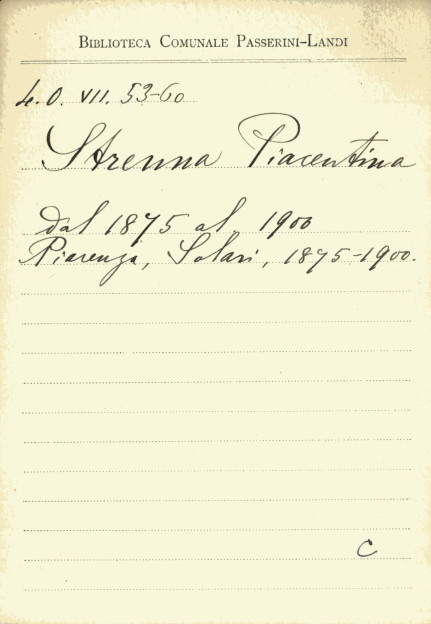 BIBLIOTECA COMUNALE PASSERINI-LANDI
4. O. VII. 53-60
Strenna Piacentina
dal 1875 al 1900
Piacenza, Solari, 1875-1900.
C